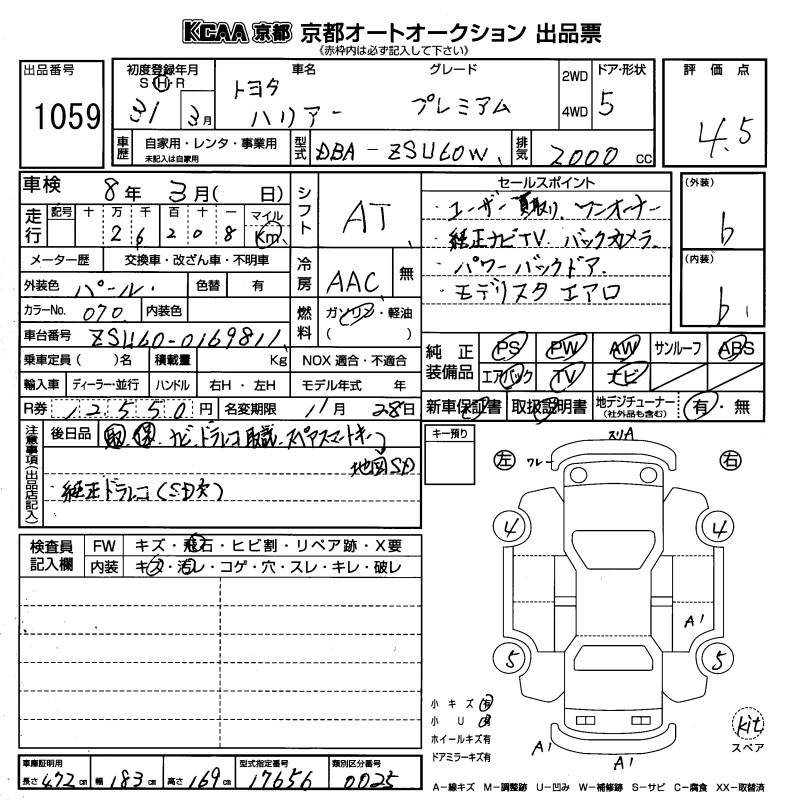 KCAA 京都 京都オートオークション 出品票
《赤枠内は必ず記入して下さい》
出品番号 1059
初度登録年月 S・H・R 31年 3月
車名 トヨタ ハリアー
グレード プレミアム
2WD 4WD
ドア・形状 5
評価点 4.5
車歴 自家用・レンタ・事業用 未記入は自家用
型式 DBA-ZSU60W
排気 2000 CC
車検 8年 3月( 日)
走行 記号 十 万 千 百 十 一 マイル Km
2 6 2 0 8
シフト AT
冷房 AAC 無
メーター歴 交換車・改ざん車・不明車
外装色 パール 色替 有
カラーNo. 070 内装色
燃料 ガソリン・軽油 ( )
車台番号 ZSU60-0169811
乗車定員( )名 積載量 Kg NOX 適合・不適合
輸入車 ディーラー・並行 ハンドル 右H・左H モデル年式 年
R券 12550円 名変期限 11月 28日
セールスポイント
・ユーザー買取り、ワンオーナー
・純正ナビTV. バックカメラ.
・パワーバックドア.
・モデリスタ エアロ
(外装) b
(内装) b
純正装備品 PS PW AW サンルーフ ABS
エアバック TV ナビ
新車保証書 取扱説明書 地デジチューナー (社外品も含む) 有・無
注意事項(出品店記入)
後日品 取 保 ナビ、ドラレコ取説、スペアスマートキー
地図SD
純正ドラレコ(SD欠)
キー預り
検査員記入欄 FW キズ・飛石・ヒビ割・リペア跡・X要
内装 キズ・汚レ・コゲ・穴・スレ・キレ・破レ
左 右
スリA
ワレー
4 4
5 5
A1
A1 A1
小キズ 有
小U 有
ホイールキズ有
ドアミラーキズ有
kit
スペア
車庫証明用 長さ 472cm 幅 183cm 高さ 169cm
型式指定番号 17656
類別区分番号 0025
A-線キズ M-調整跡 U-凹み W-補修跡 S-サビ C-腐食 XX-取替済